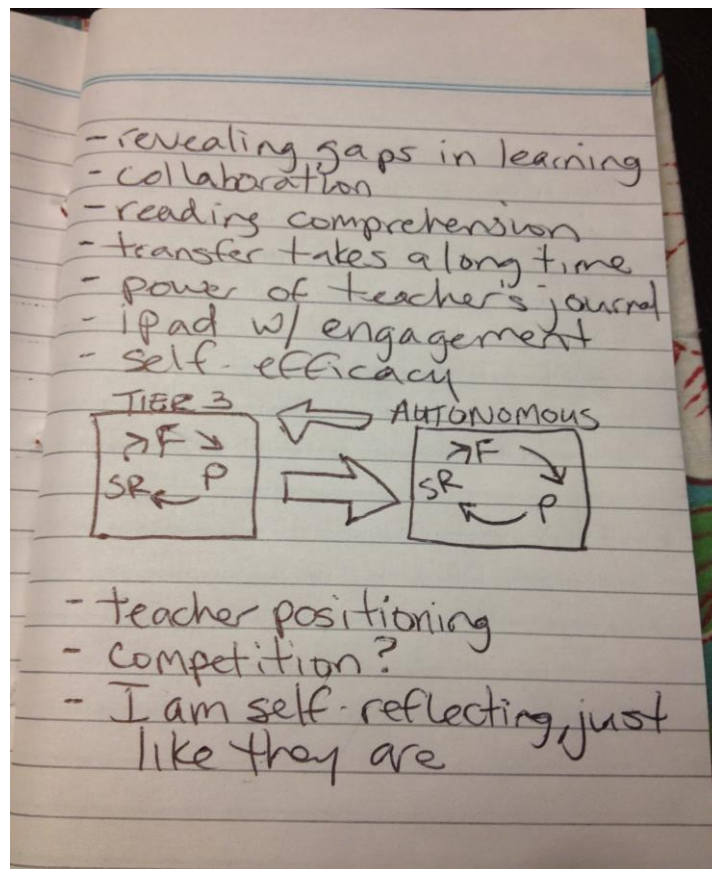 - revealing gaps in learning
- collaboration
- reading comprehension
- transfer takes a long time
- power of teacher's journal
- ipad w/ engagement
- self-efficacy
TIER 3 AUTONOMOUS
F F
SR P SR P
- teacher positioning
- competition?
- I am self-reflecting, just
like they are